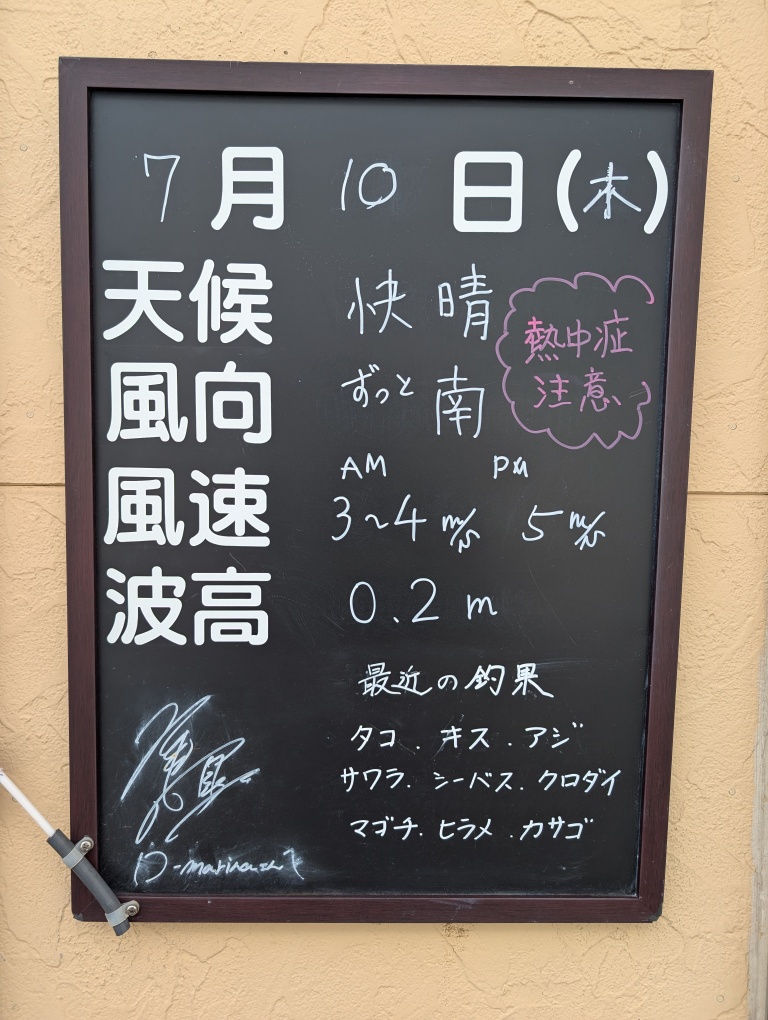 7月10日(木)
天候 快晴
熱中症
注意、
風向 ずっと南
AM PM
風速 3~4m/s 5m/s
波高 0.2m
最近の釣果
タコ.キス.アジ
サワラ.シーバス.クロダイ
マゴチ.ヒラメ.カサゴ
D-marinaさん江